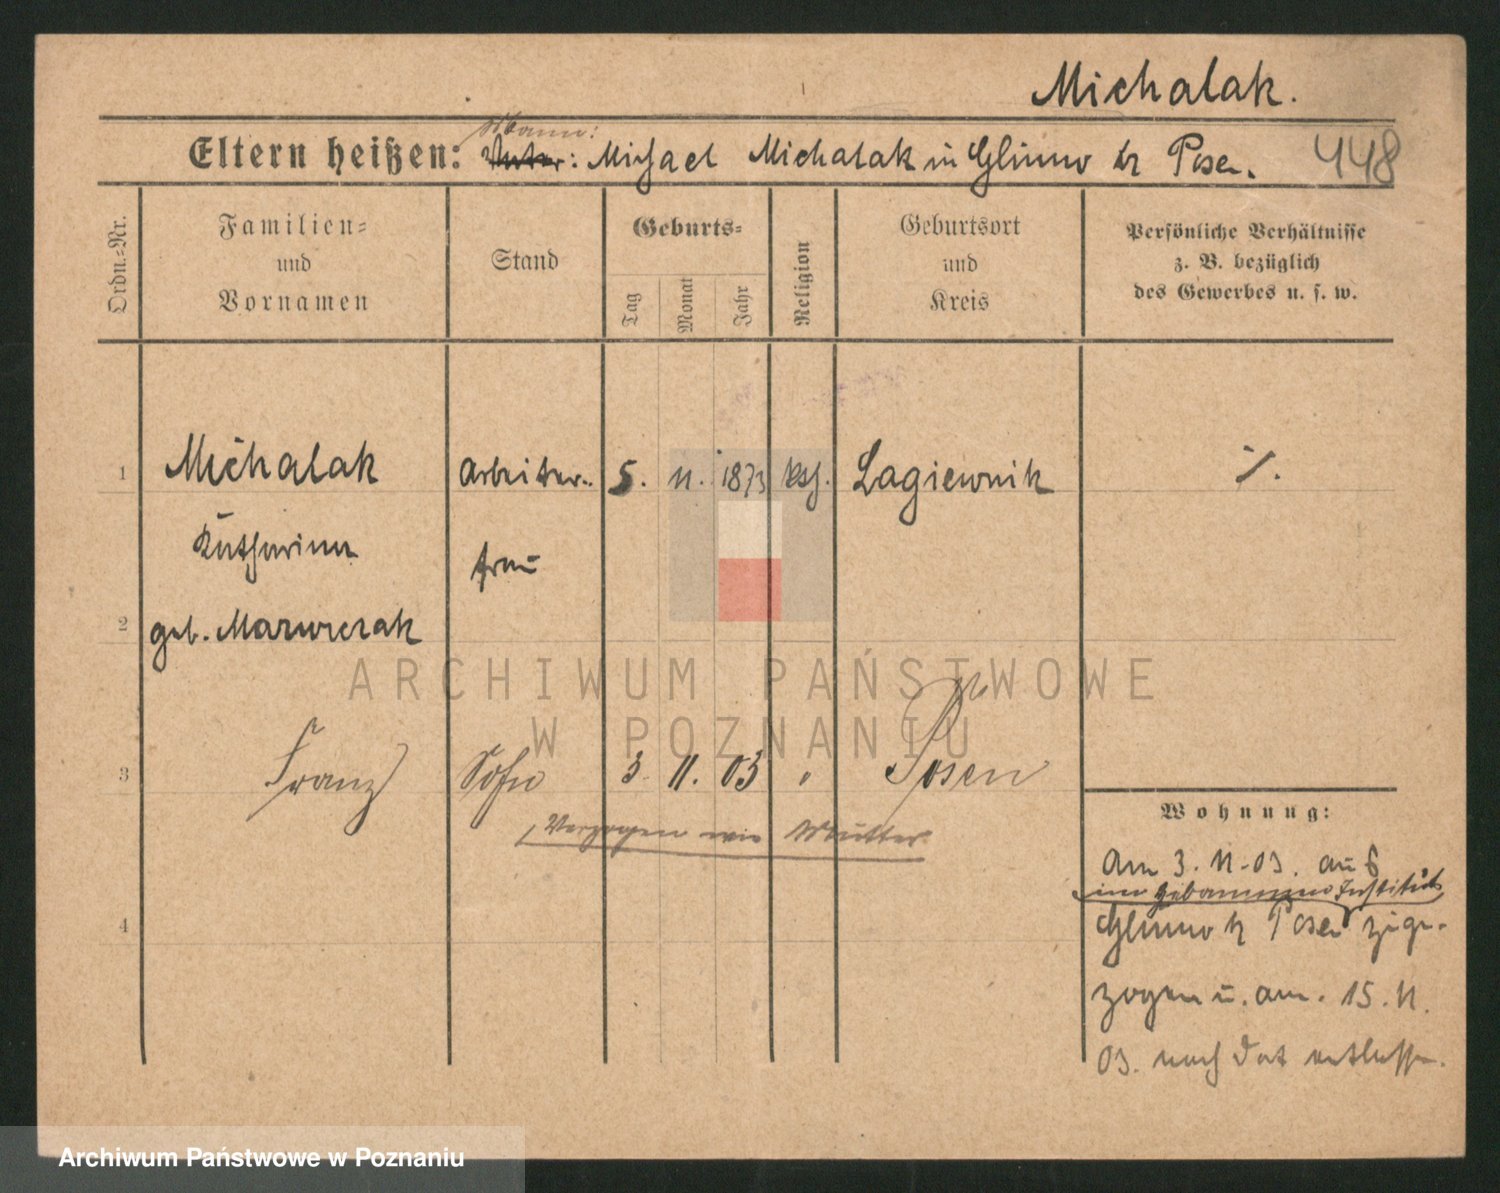 Michalak.
Mann:
Eltern heißen: Vater: Michael Michalak in Glinno b Posen.
448
Ordn.-Nr.
Familien-
und
Vornamen
Stand
Geburts-
Tag
Monat
Jahr
Religion
Geburtsort
und
Kreis
Persönliche Verhältnisse
z. B. bezüglich
des Gewerbes u. s. w.
1 Michalak Arbeiter- 5. 11. 1873 kath. Lagiewnik %.
Katharina frau
2 geb. Marwiczak
3 Franz Sohn 3. 11. 03 " Posen
Verzogen wie Mutter
4
Wohnung:
Am 3.11.03. aus
im Hebammen Institut
Glinno b Posen zuge-
zogen u. am. 15.11.
03. nach dort entlassen.
ARCHIWUM PAŃSTWOWE
W POZNANIU
Archiwum Państwowe w Poznaniu